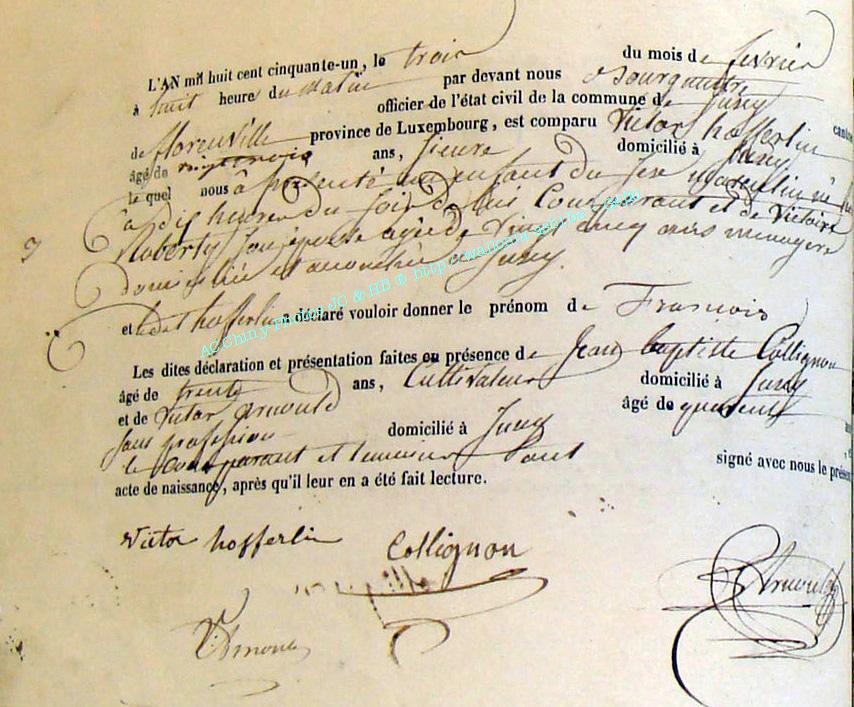 L'AN mil huit cent cinquante-un, le trois du mois de fevrier
à huit heure du Matin par devant nous Bourgmestre
officier de l'état civil de la commune de Jusey
de florenville province de Luxembourg, est comparu Victor hofferlin canton
âgé de ans, domicilié à
le quel nous à présenté un enfant du sexe masculin né
à dix heures du soir de lui Comparant et de Victoire
Noberty son épouse agée de Vingt cinq ans menagere
domiciliée et accouchée a
et le dit hofferlin a déclaré vouloir donner le prénom de Francois
Les dites déclaration et présentation faites en présence de Jean baptiste Collignon
âgé de trente ans, Cultivateur domicilié à
et de Victor arnould âgé de quarente
sans profession domicilié à
le comparant et temoins ont signé avec nous le présent
acte de naissance, après qu'il leur en a été fait lecture.
Victor hofferlin
Collignon
Arnould
VArnould
ACChiny Photos JC & HB ® http://